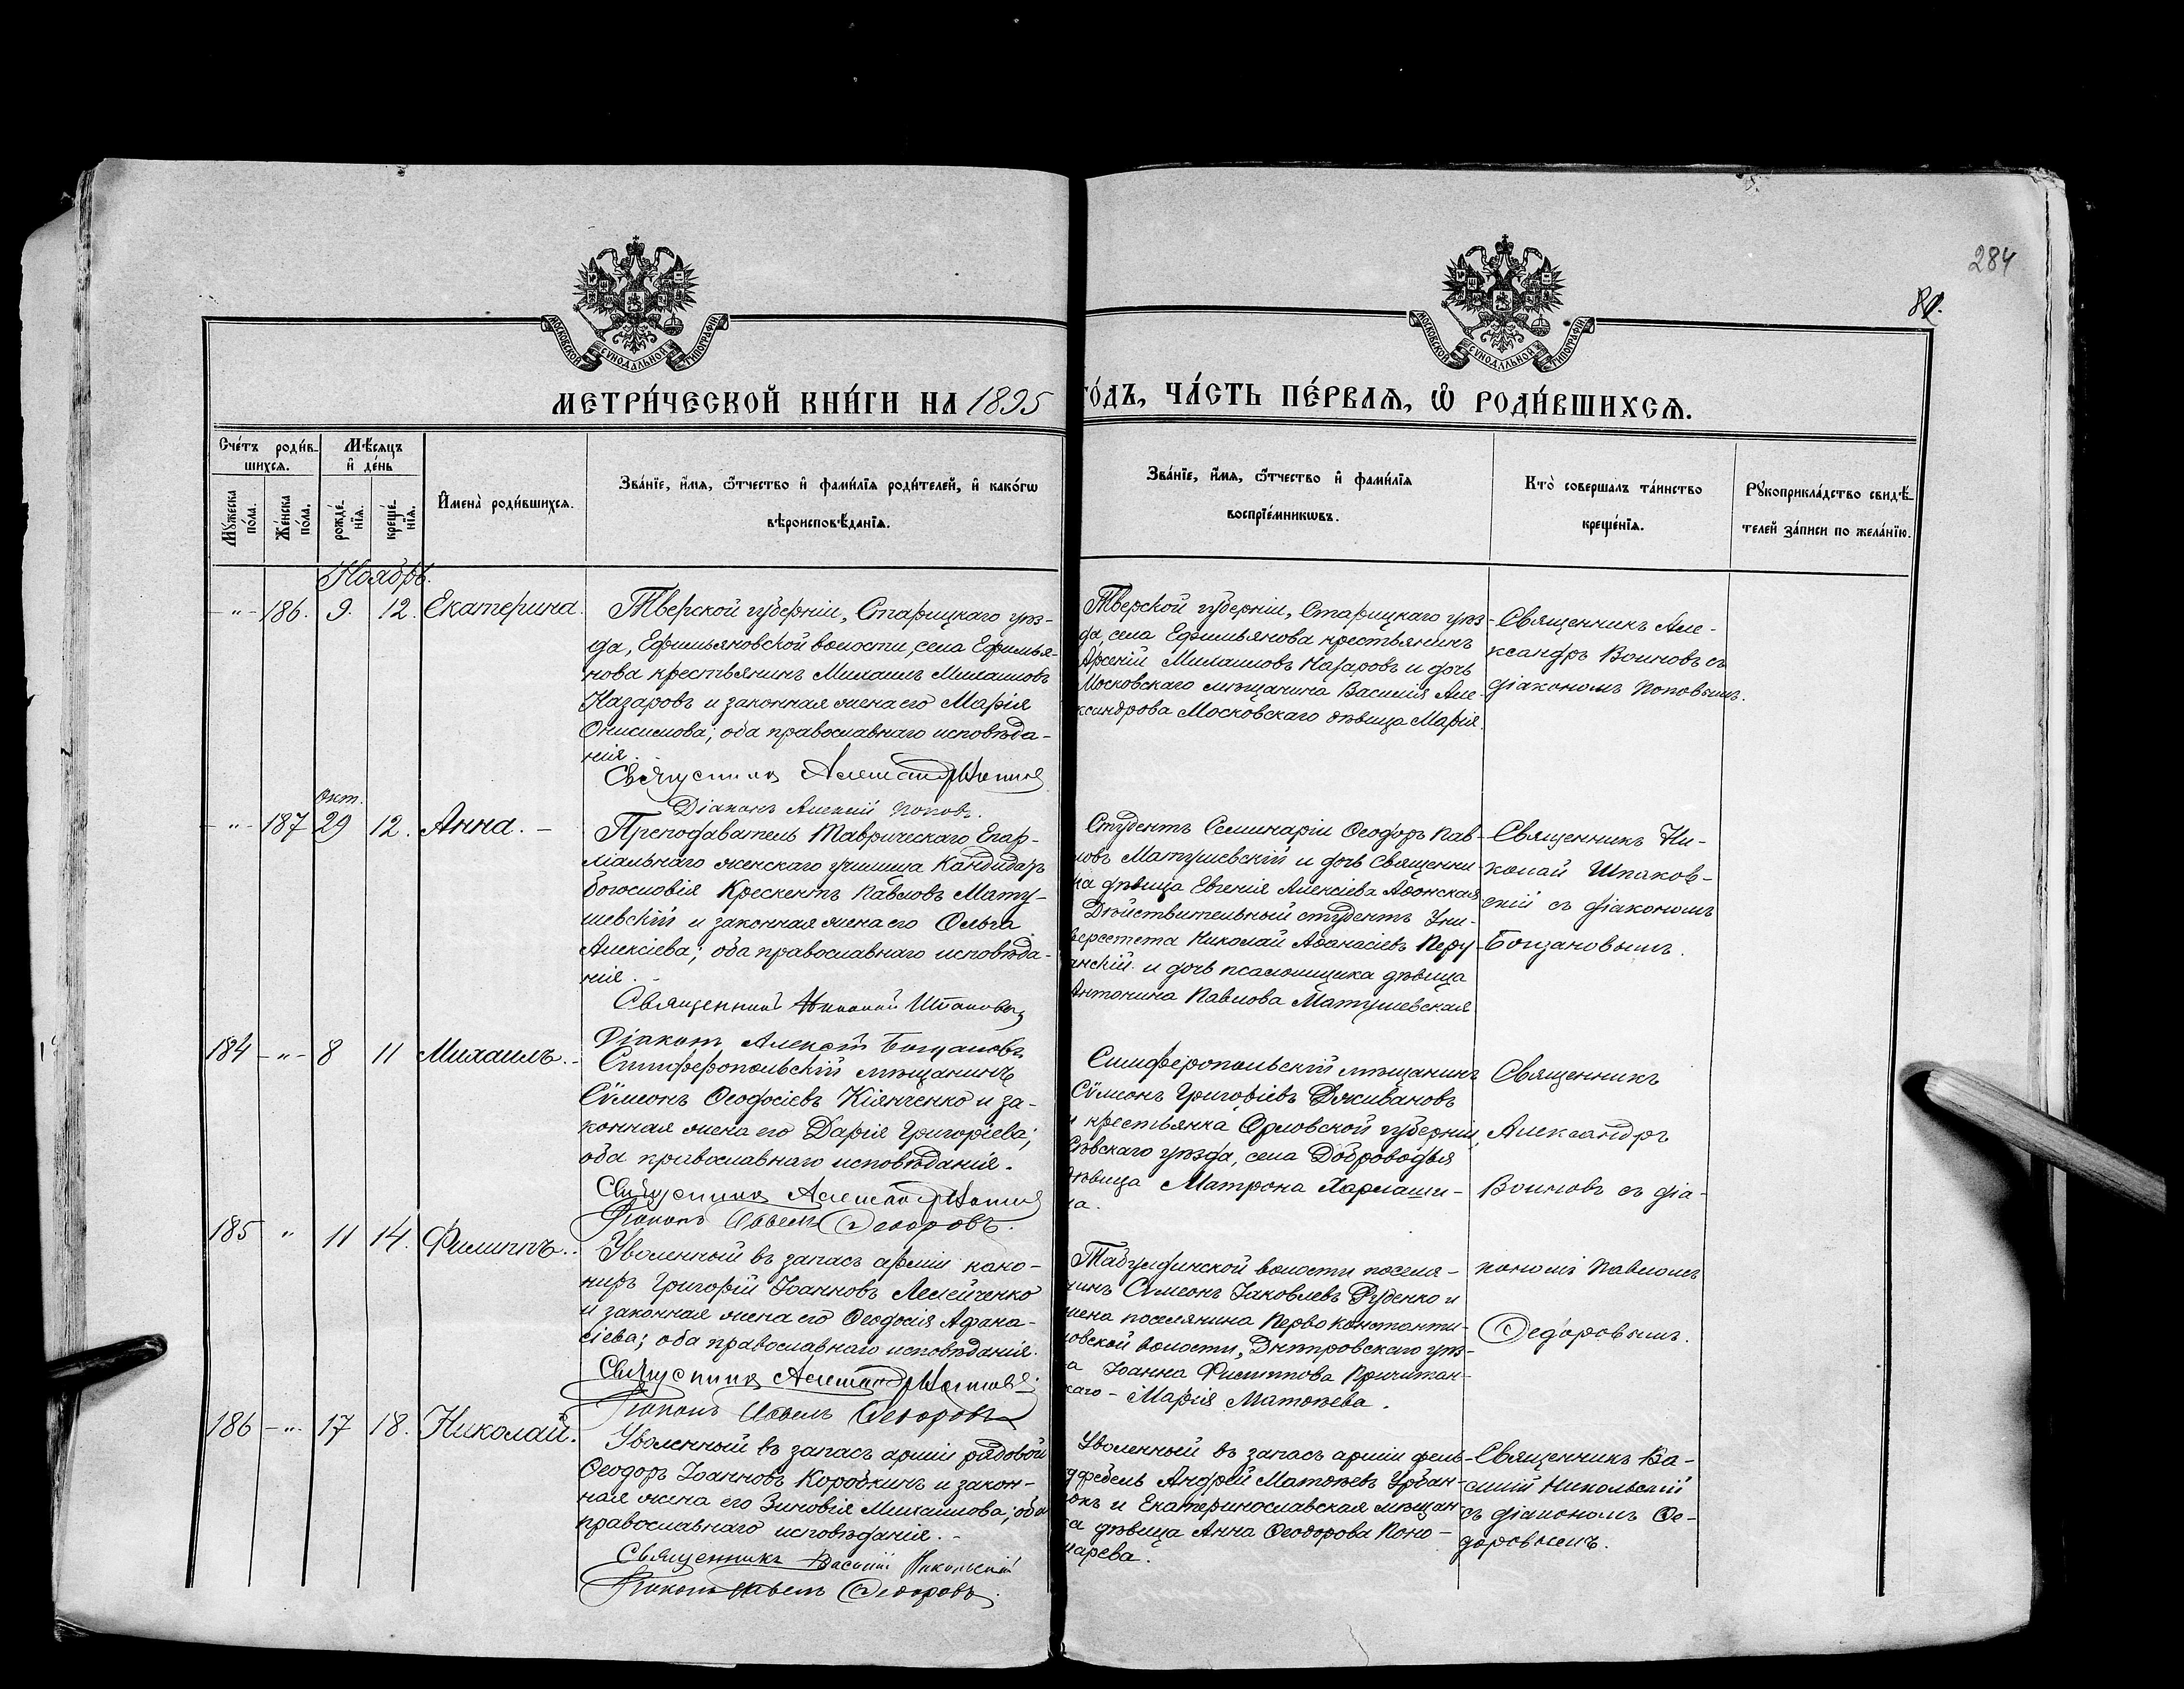 284
81.
МОСКОВСКОЙ СѴНОДАЛЬНОЙ ТИПОГРАФІИ
МОСКОВСКОЙ СѴНОДАЛЬНОЙ ТИПОГРАФІИ
МЕТРИ́ЧЕСКОЙ КНИ́ГИ НА 1895
ГО́ДЪ, ЧА́СТЬ ПЕ́РВАѦ, Ѡ҆ РОДИ́ВШИХСѦ.
Сче́тъ роди́в-
шихсѧ.
Мꙋ́жеска по́ла.
Же́нска по́ла.
Мѣ́сѧцъ
и҆ де́нь
рожде́-
нїѧ.
креще́-
нїѧ.
И҆мена̀ роди́вшихсѧ.
Зва́нїе, и҆́мѧ, ѻ҆́тчество и҆ фами́лїѧ роди́телей, и҆ како́гѡ
вѣроисповѣ́данїѧ.
Зва́нїе, и҆́мѧ, ѻ҆́тчество и҆ фами́лїѧ
воспрїе́мникѡвъ.
Кто̀ совершалъ та́инство
креще́нїѧ.
Рꙋкоприкла́дство свидѣ́-
телей за́писи по жела́нїю.
Ноябрь.
-"- 186. 9. 12. Екатерина.
Тверской губерніи, Старицкаго уѣз-
да, Ефимьяновской волости, села Ефимья-
нова крестьянинъ Михаилъ Михаиловъ
Назаровъ и законная жена его Марія
Онисимова; оба православнаго исповѣда-
нія.
Александръ
Діаконъ Алексій Поповъ.
Тверской губерніи, Старицкаго уѣз-
да, села Ефимьянова крестьянинъ
Арсеній Михаиловъ Назаровъ и дочь
Московскаго мѣщанина Василія Але-
ксандрова Московскаго дѣвица Марія.
Священникъ Але-
ксандръ Воиновъ съ
діакономъ Поповымъ.
-"- 187 Окт. 29 12. Анна. -
Преподаватель Таврическаго Епар-
хіальнаго женскаго училища Кандидатъ
богословія Крескентъ Павловъ Мату-
шевскій и законная жена его Ольга
Алексіева; оба православнаго исповѣда-
нія.
Священникъ Николай Шпаковскій
Діаконъ Алексѣй Бощановъ
Студентъ Семинаріи Ѳеодоръ Пав-
ловъ Матушевскій и дочь Священни-
ка дѣвица Евгенія Алексіева Аѳонская
Дѣйствительный студентъ Уни-
верситета Николай Аѳанасіевъ Перу-
анскій и дочь псаломщика дѣвица
Антонина Павлова Матушевская
Священникъ Ни-
колай Шпаков-
скій съ діакономъ
Бощановымъ.
184 -"- 8 11 Михаилъ. -
Симферопольскій мѣщанинъ
Сѵмеонъ Ѳеодосіевъ Кіянченко и за-
конная жена его Дарія Григоріева;
оба православнаго исповѣданія.
Діаконъ Павелъ Ѳедоровъ.
Симферопольскій мѣщанинъ
Сѵмеонъ Григоріевъ Дживановъ
и крестьянка Орловской губерніи,
Сѣвскаго уѣзда, села Доброводья
дѣвица Матрона Харлаши-
на.
Священникъ
Александръ
Воиновъ съ діа-
кономъ Павломъ
Ѳедоровымъ.
185 " 11 14. Филиппъ.
Уволенный въ запасъ арміи кано-
ниръ Григорій Іоанновъ Лелейченко
и законная жена его Ѳеодосія Аѳана-
сіева; оба православнаго исповѣданія.
Діаконъ Павелъ Ѳедоровъ
Табулдинской волости поселя-
нинъ Сѵмеонъ Іаковлевъ Руденко и
жена поселянина Первоконстанти-
новской волости, Днѣпровскаго уѣз-
да Іоанна Филиппова
скаго - Марія Матѳеева.
186 -"- 17 18. Николай.
Уволенный въ запасъ арміи рядовой
Ѳеодоръ Іоанновъ Коробкинъ и закон-
ная жена его Зиновія Михаилова; оба
православнаго исповѣданія. -
Священникъ Василій Никольскій
Діаконъ Павелъ Ѳедоровъ.
Уволенный въ запасъ арміи фель-
дфебель Андрей Матѳеевъ Урбан-
окъ и Екатеринославская мѣщан-
ка дѣвица Анна Ѳеодорова Поно-
марева.
Священникъ Ва-
силій Никольскій
съ діакономъ Ѳе-
доровымъ.